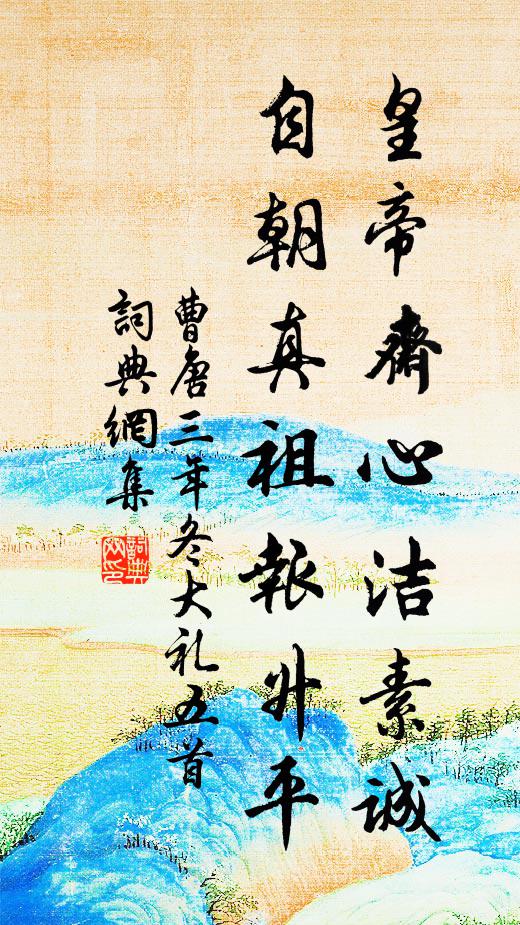 皇帝齋心洁素誠
自朝真祖報升平
曹唐三年冬大礼五首
詞典網集
詞典網印